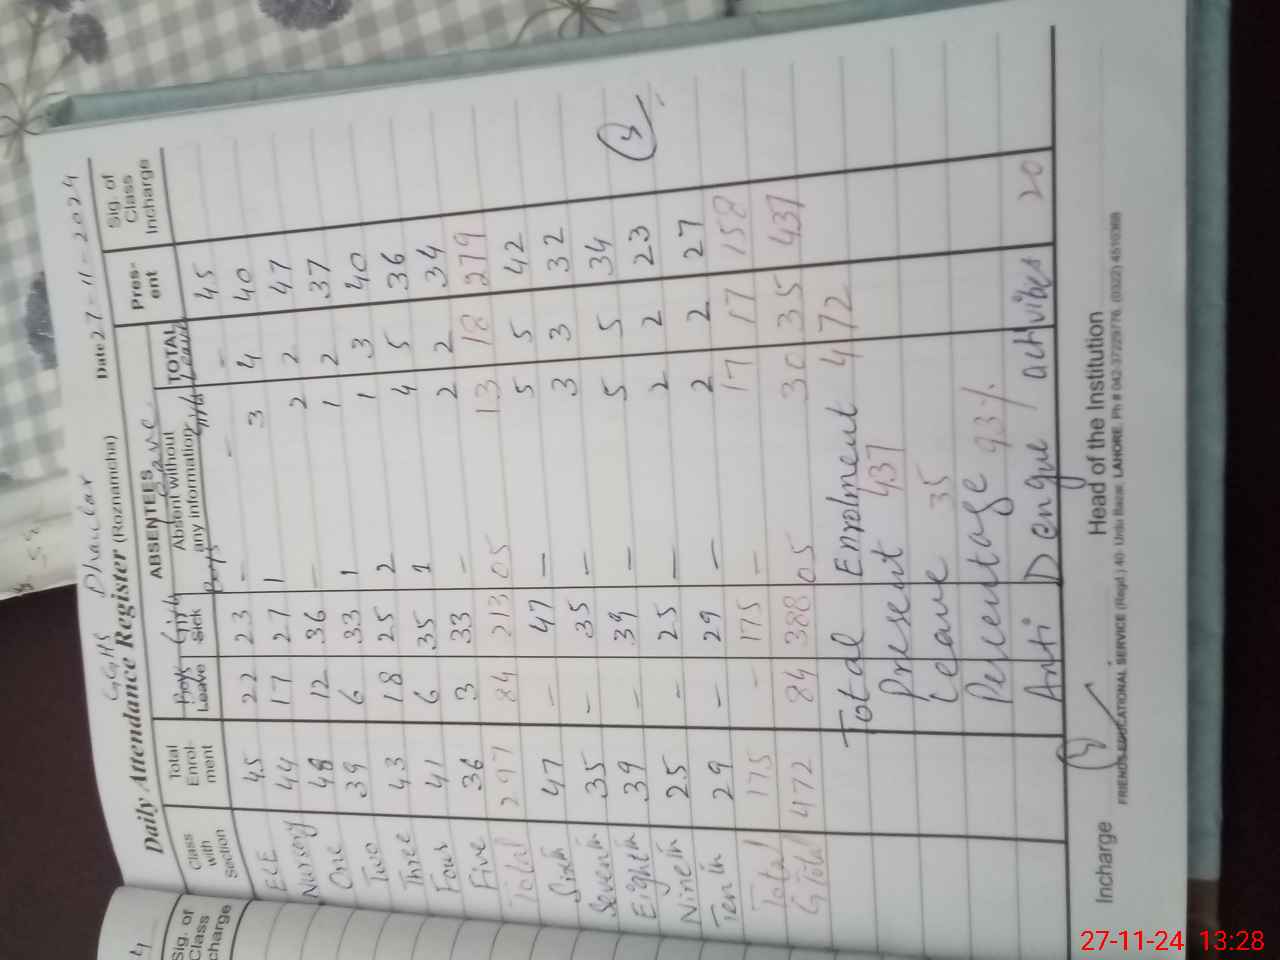 GGHS Dhaular
Daily Attendance Register (Roznamcha) Date 27-11-2024
Class with Section Total Enrol-ment Boys Leave Girls Sick ABSENTEES Leave Absent without any information Boys Girls TOTAL Leave Pres-ent Sig. of Class Incharge
ECE 45 22 23 - - - 45
Nursery 44 17 27 1 3 4 40
One 48 12 36 - 2 2 47
Two 39 6 33 1 1 2 37
Three 43 18 25 2 1 3 40
Four 41 6 35 1 4 5 36
Five 36 3 33 - 2 2 34
Total 297 84 213 05 13 18 279
Sixth 47 - 47 - 5 5 42
Seventh 35 - 35 - 3 3 32
Eighth 39 - 39 - 5 5 34
Nineth 25 - 25 - 2 2 23
Tenth 29 - 29 - 2 2 27
Total 175 - 175 - 17 17 158
G Total 472 84 388 05 30 35 437
Total Enrolment 472
Present 437
Leave 35
Percentage 93%
Anti Dengue activites 20
Incharge Head of the Institution
FRIENDS EDUCATIONAL SERVICE (Regd.) 40- Urdu Bazar, LAHORE.
Sig. of Class
charge
27-11-24 13:28